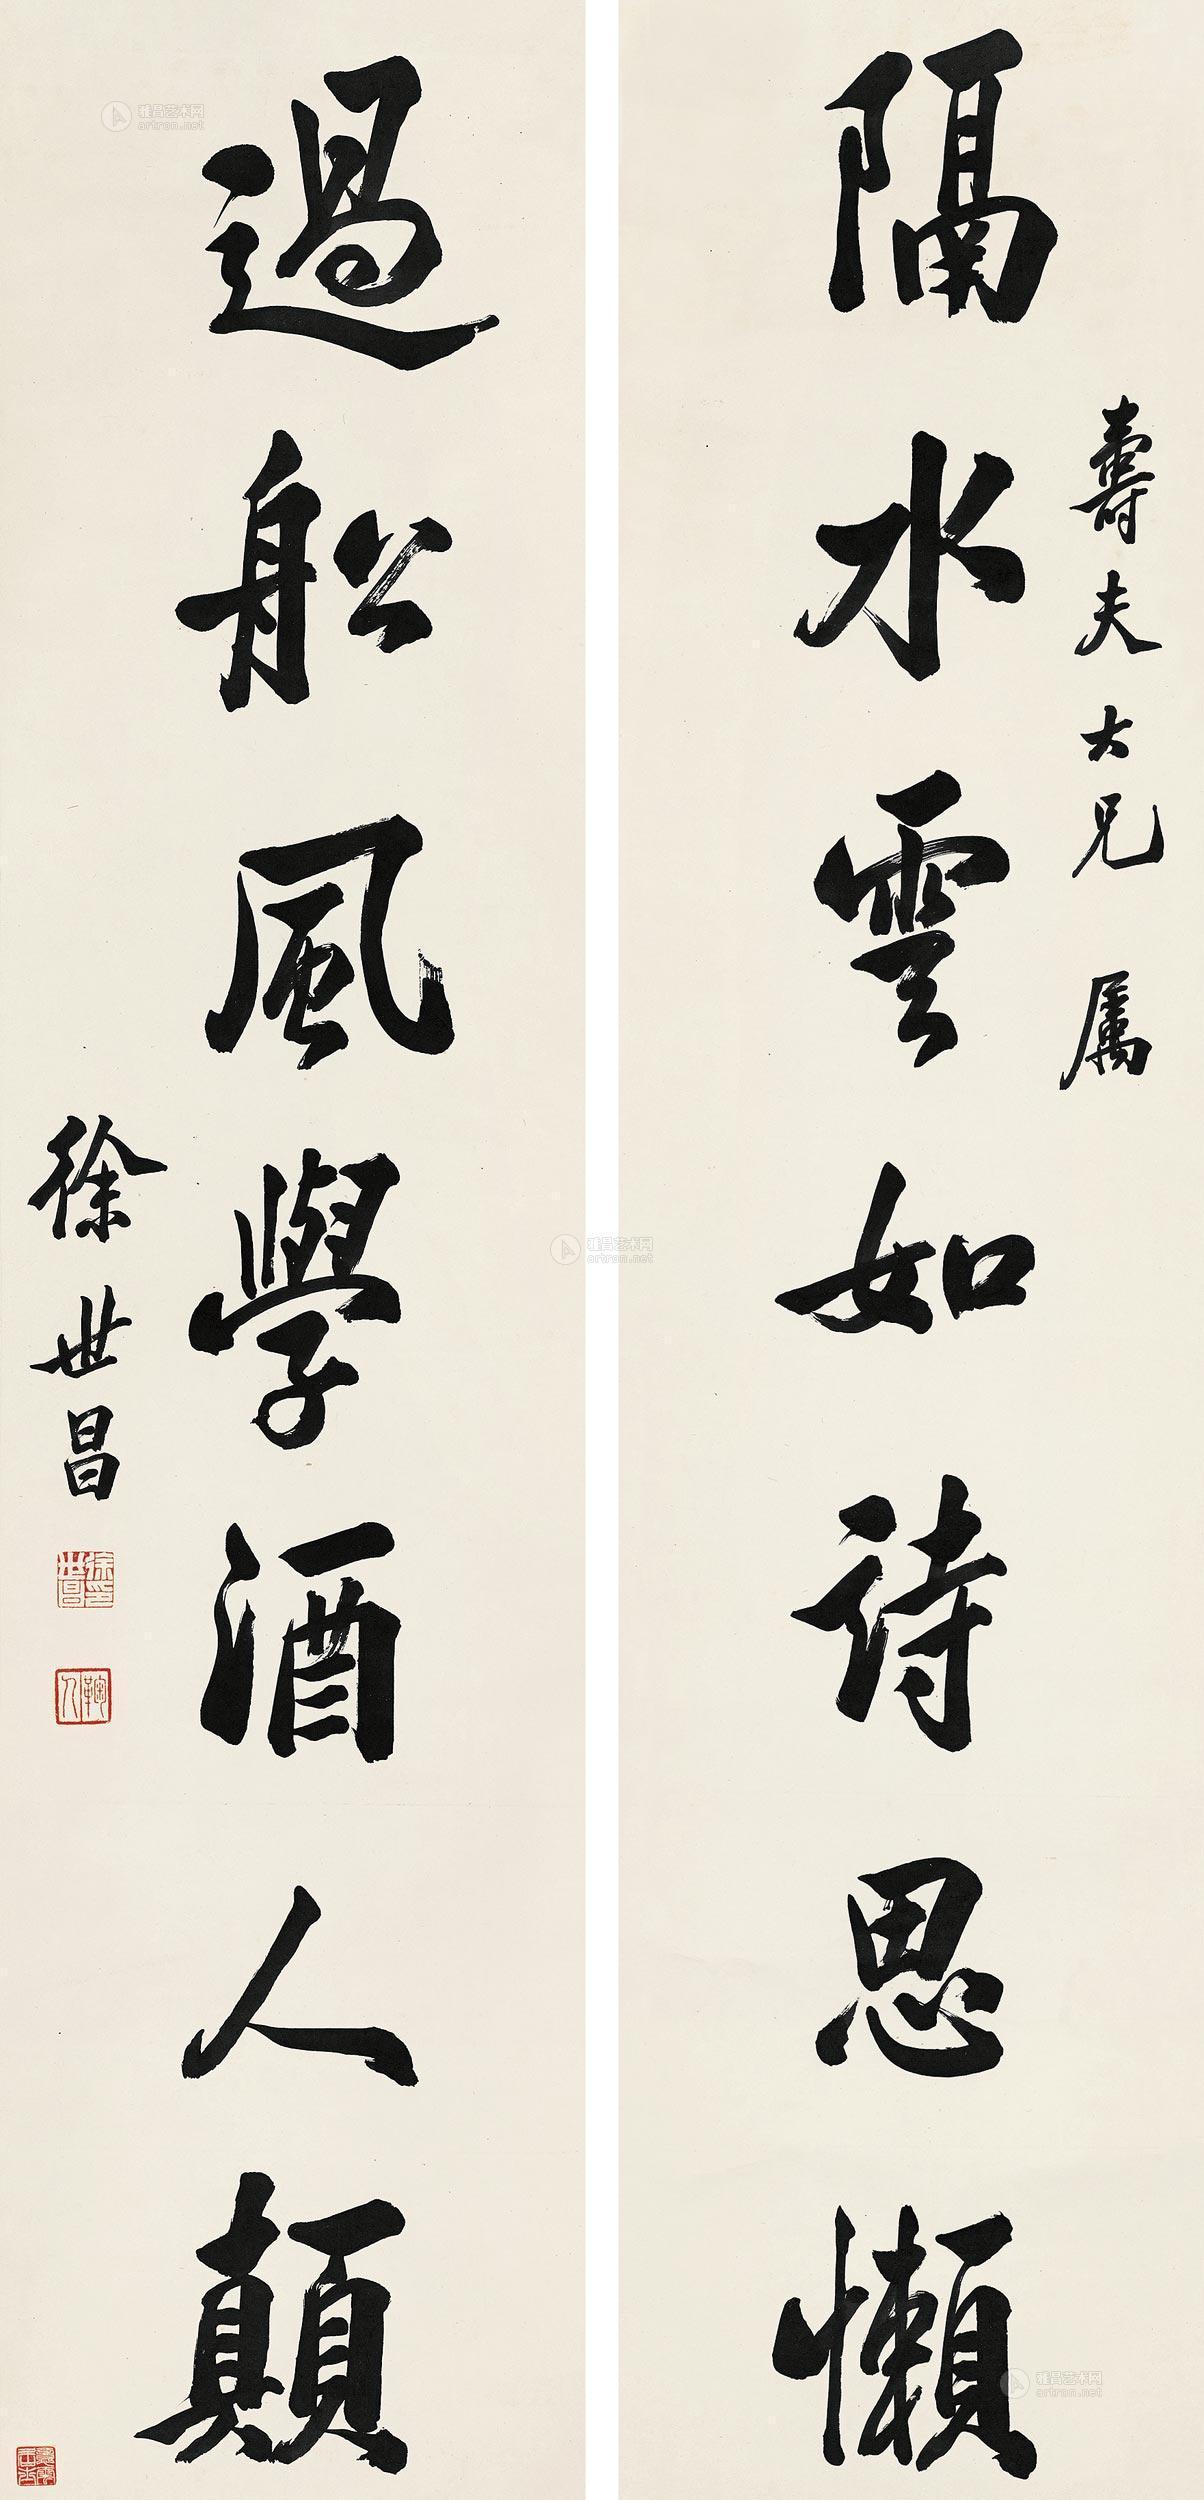 壽夫大兄屬
隔水雲如詩思懶
過船風學酒人顛
徐世昌
徐世昌印
鞠人
雅昌艺术网
artron.net
雅昌艺术网
artron.net
雅昌艺术网
artron.net